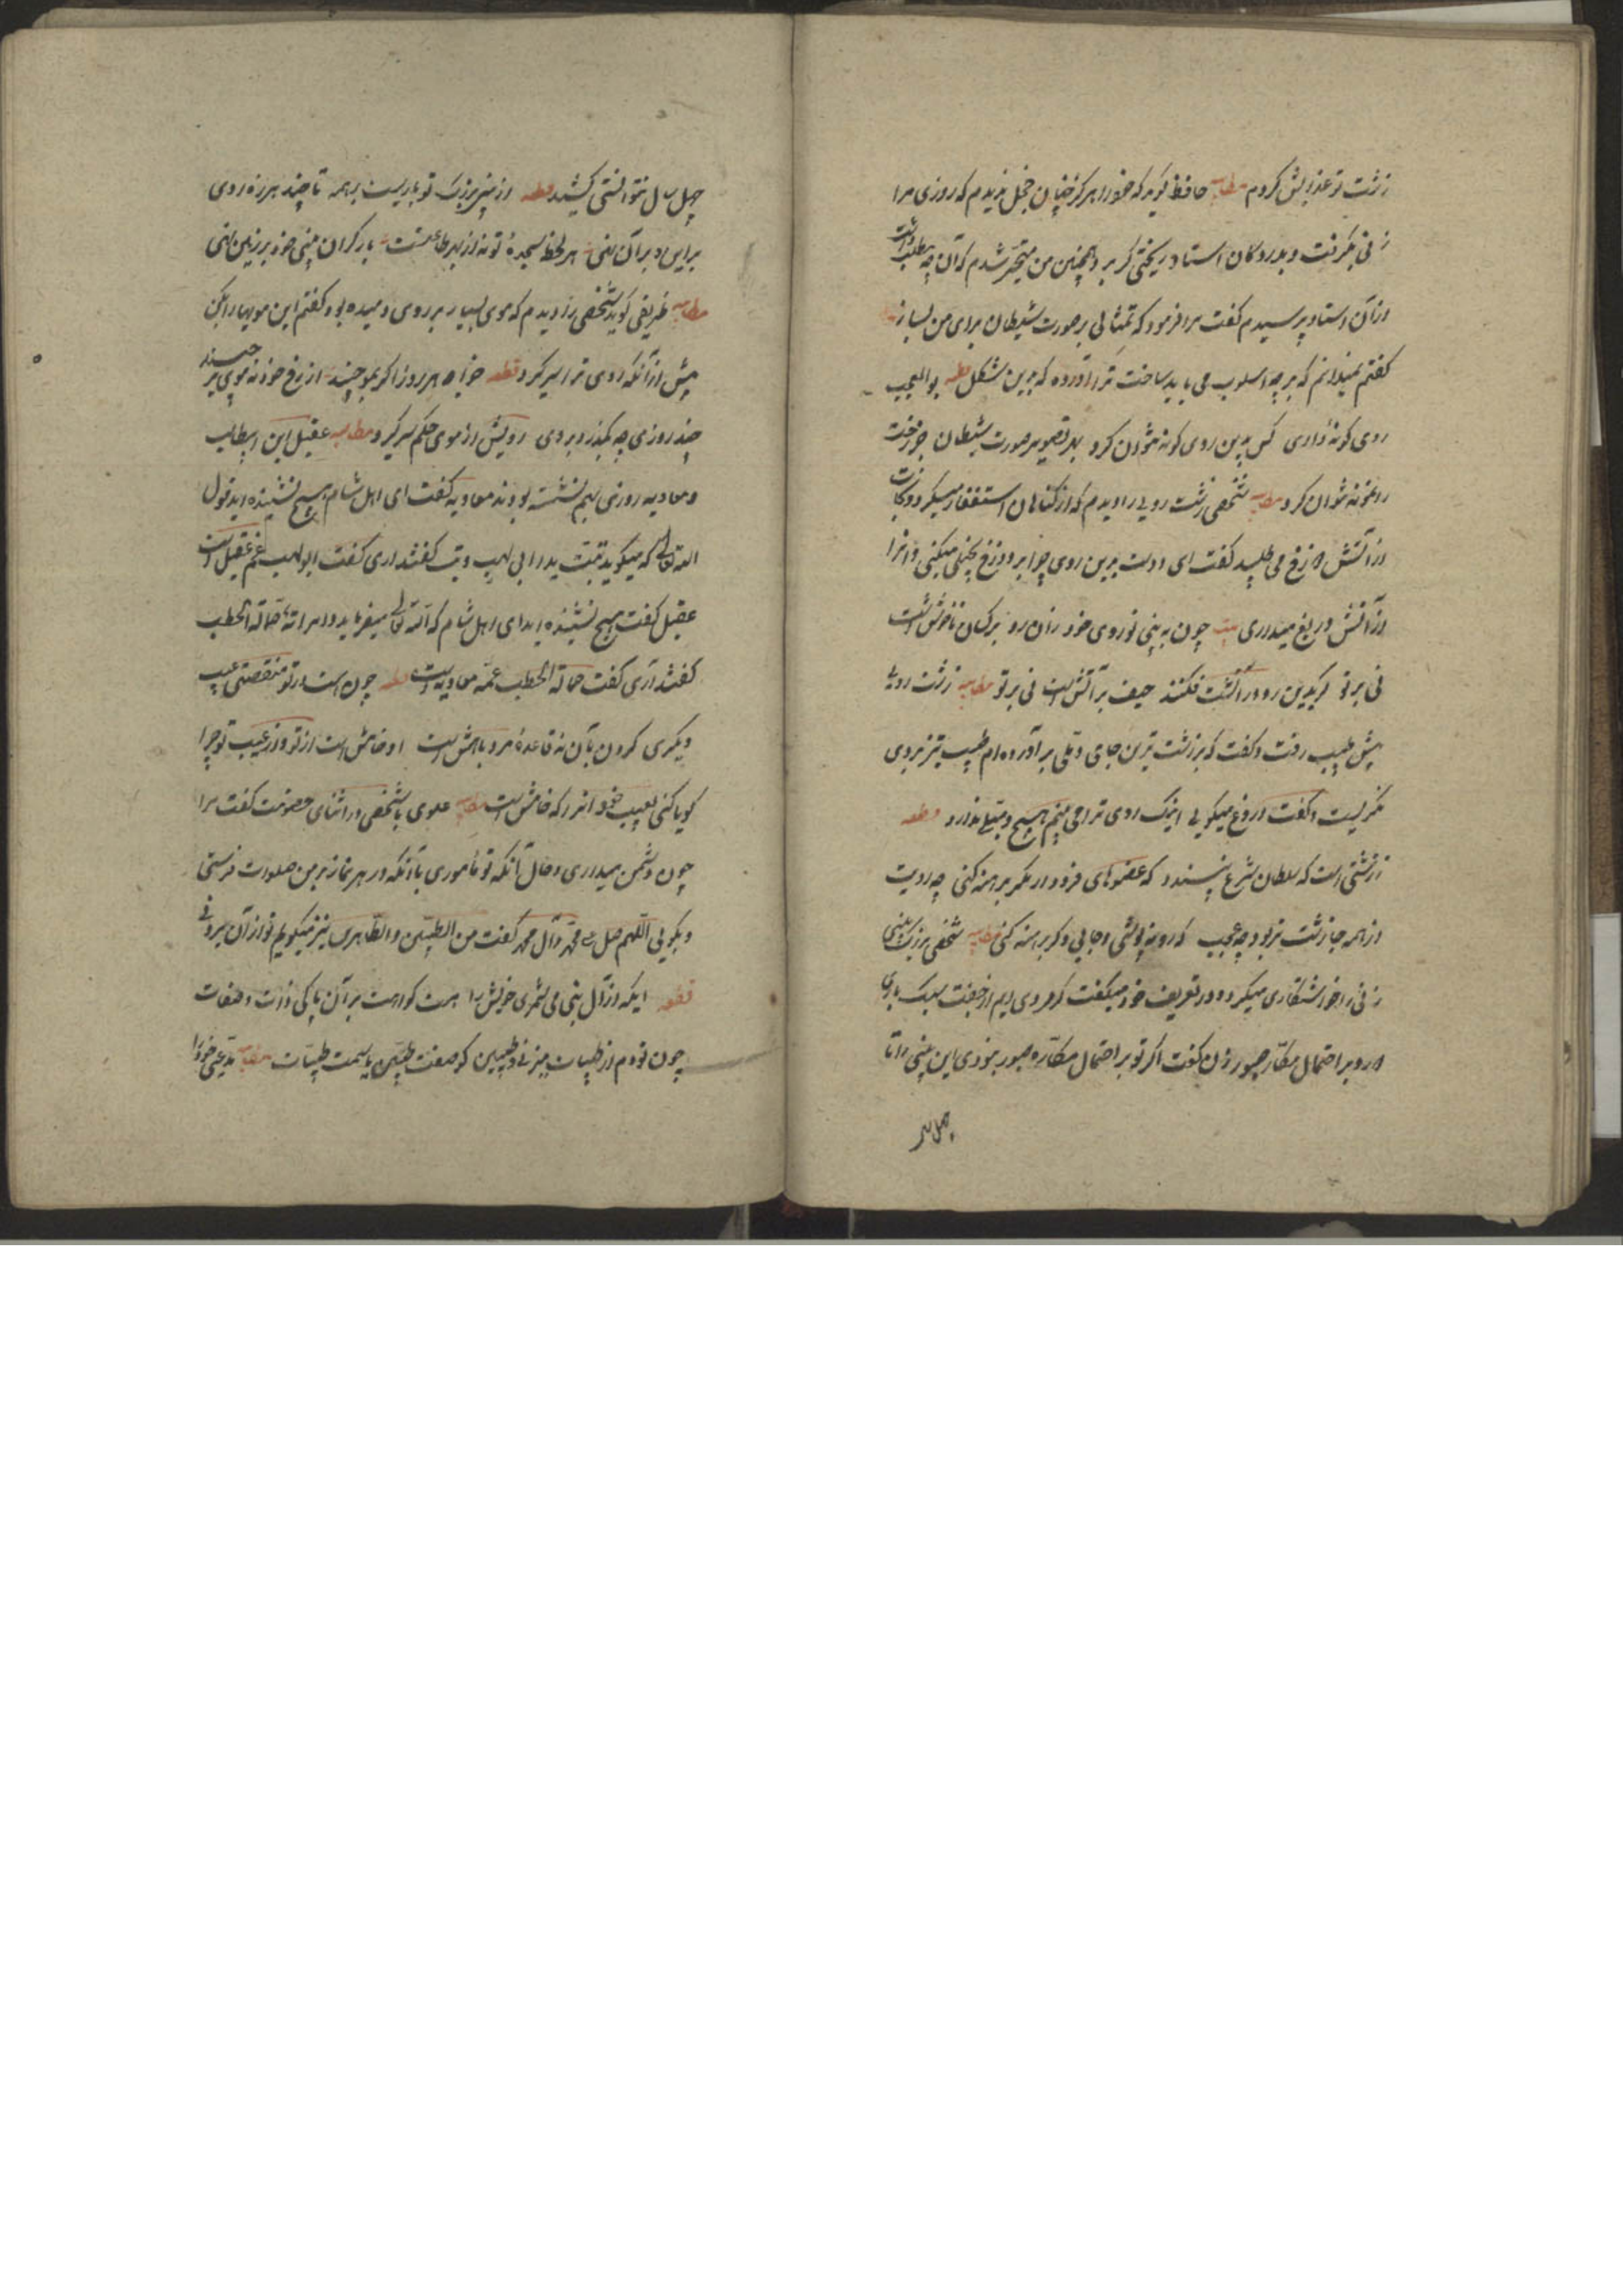 زشت تو عذابش کردم مطایبه جاحظ گوید که خود را هرگز چنان خجل ندیدم که روزی مرا
زنی بگرفت و بدر دکان استاد ریختگر برد همچنین من متحیر شدم که آن چه مطلب داشت
از آن استاد پرسیدم گفت مرا فرموده که تمثالی بر صورت شیطان برای من بساز
گفتم نمیدانم که بر چه اسلوب می باید ساخت ترا آورده که بدین شکل قطعه بوالعجب
روی گونه داری کس بدین روی گونه نتوان کرد بهر تصویر صورت شیطان جز رخت
را نمونه نتوان کرد مطایبه شخصی زشت رویی را دیدم که از گناهان استغفار میکرد و نجات
از آتش دوزخ می طلبید گفت ای دوست بدین روی چرا بر دوزخ بخیلی میکنی و آنرا
از آتش دریغ میداری بیت چون نه بینی تو روی خود زان رو بر کسان ناخوش است
نی بر تو گر بدین رو در آتشت فکنند حیف بر آتش است نی بر تو مطایبه زشت رویی
پیش طبیب رفت و گفت که بر زشت ترین جای دملی بر آورده ام طبیب تیز بروی
نگریست و گفت دروغ میگویی اینک روی ترا می بینم هیچ دملی ندارد قطعه
زشتی است که سلطان شرع نپسندد که عضوهای فرود از کمر برهنه کنی چه رویت
از همه جا زشت تر بود چه عجب که رو بپوشی و جایی دگر برهنه کنی مطایبه شخصی بزرگ بینی
زنی را خواستگاری میکرد و در تعریف خود میگفت که مردی ام از خفت و سبک باری
دور و بر احتمال مکاره صبور زن گفت اگر تو بر احتمال مکاره صبور نبودی این بینی را تا
چهل سال
چهل سال نتوانستی کشید قطعه از بینی بزرگ تو باریست بر همه تا چند هرزه روی
بر این و بر آن نهی هر لحظه سجده تو نه از بهر طاعتست بار گران بینی خود بر زمین نهی
مطایبه ظریفی گوید شخصی را دیدم که موی بسیار بر روی دمیده بود گفتم این مویها را بکن
پیش از آنکه روی ترا سر گیرد قطعه خواجه هر روز اگر بموچینه از رخ خود نه موی بر چیند
چند روزی چو بگذرد بروی رویش از موی حکم سر گیرد مطایبه عقیل ابن ابیطالب
و معاویه روزی بهم نشسته بودند معاویه گفت ای اهل شام هیچ نشنیده اید قول
الله تعالی که میگوید تبت یدا ابی لهب وتب گفتند آری گفت ابولهب عم عقیل است
عقیل گفت هیچ نشنیده اید ای اهل شام که الله تعالی میفرماید وامراته حمالة الحطب
گفتند آری گفت حمالة الحطب عمه معاویه است قطعه چون هست در تو منقصتی عیب
دیگری کردن بآن نه قاعده مرد باهش است او خامش است از تو و از عیب تو چرا
گویا کنی بعیب خود آنرا که خامش است مطایبه علوی با شخصی در اثنای خصومت گفت مرا
چون دشمن میداری و حال آنکه تو مأموری بآنکه در هر نماز بر من صلوات فرستی
و بگویی اللهم صل علی محمد وآل محمد گفت من الطیبین والطاهرین نیز میگویم تو از آن بیرونی
قطعه ایکه از آل نبی می شمری خویش را هست گواهت بر آن پاکی ذات و صفات
چون تو دم از طیبات میزنی و طیبین کو صفت طیبین یا سمت طیبات مطایبه مدعی خود را